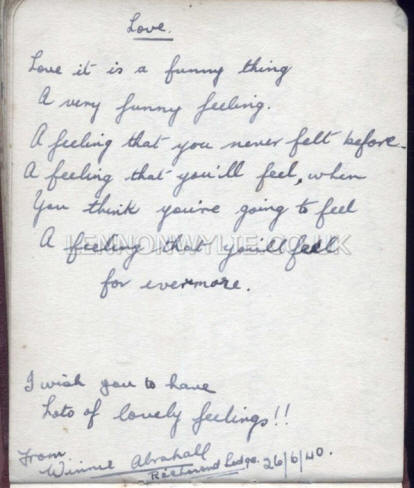 Love.
Love it is a funny thing
A very funny feeling.
A feeling that you never felt before.
A feeling that you'll feel, when
You think you're going to feel
A feeling that you'll feel
for evermore.
LENNONWYLIE.CO.UK
I wish you to have
Lots of lovely feelings!!
From
Winnie Abrahall
Lodge. 26/6/40.